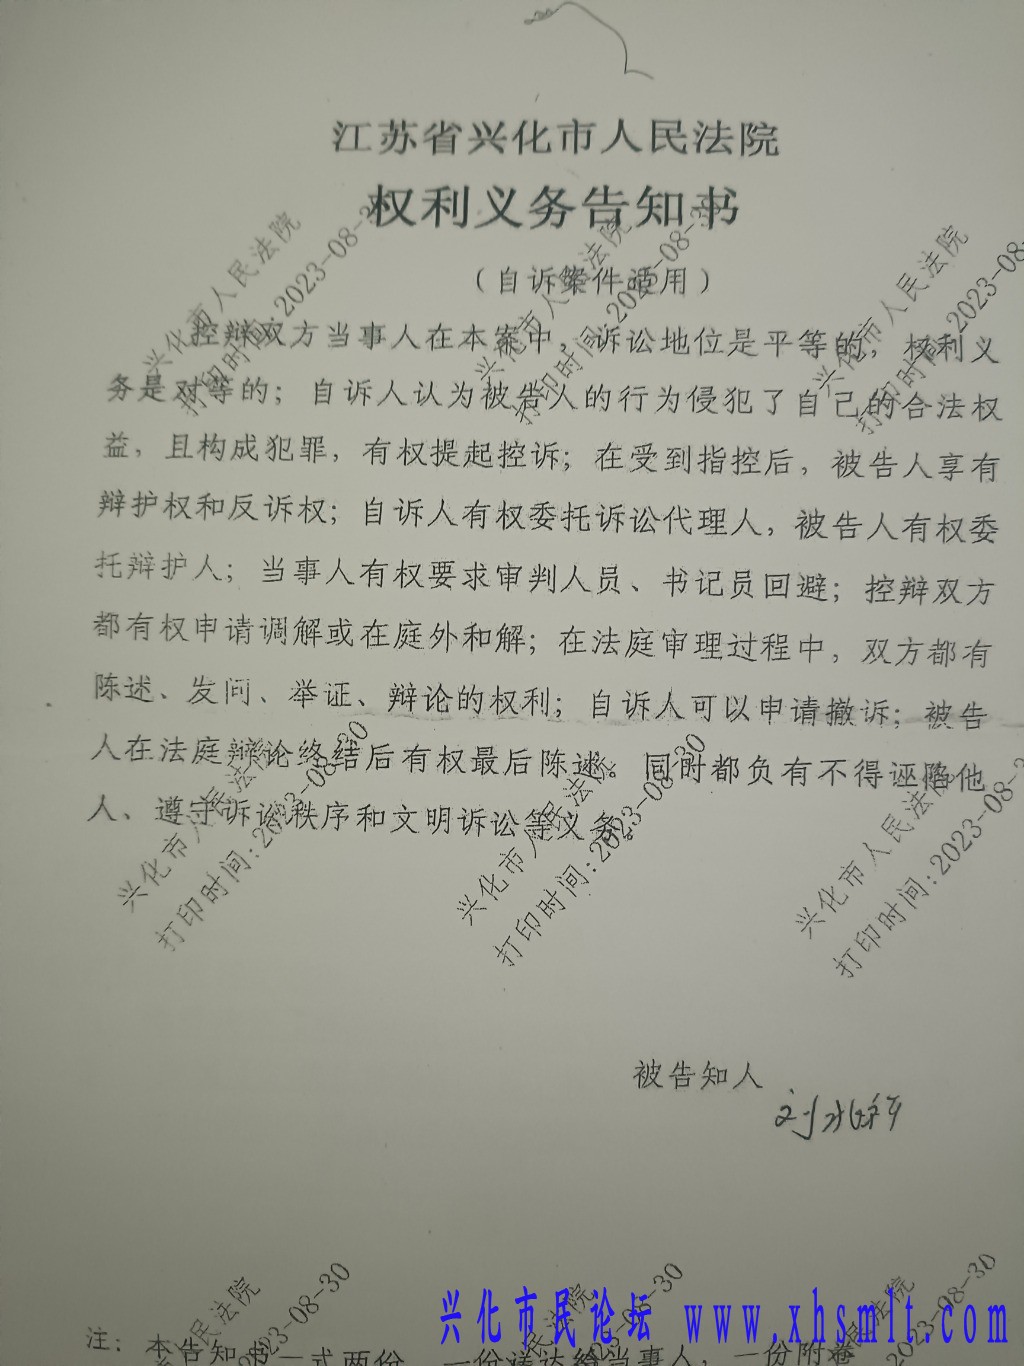 江苏省兴化市人民法院
权利义务告知书
（自诉案件适用）
控辩双方当事人在本案中，诉讼地位是平等的，权利义
务是对等的；自诉人认为被告人的行为侵犯了自己的合法权
益，且构成犯罪，有权提起控诉；在受到指控后，被告人享有
辩护权和反诉权；自诉人有权委托诉讼代理人，被告人有权委
托辩护人；当事人有权要求审判人员、书记员回避；控辩双方
都有权申请调解或在庭外和解；在法庭审理过程中，双方都有
陈述、发问、举证、辩论的权利；自诉人可以申请撤诉；被告
人在法庭辩论终结后有权最后陈述。同时都负有不得诬陷他
人、遵守诉讼秩序和文明诉讼等义务。
被告知人
注：本告知书一式两份，一份送达给当事人，一份附卷
兴化市人民法院
打印时间：2023-08-30
兴化市人民法院
打印时间：2023-08-30
兴化市人民法院
打印时间：2023-08
兴化市人民法院
打印时间：2023-08-30
兴化市人民法院
打印时间：2023-08-30
兴化市人民法院
打印时间：2023-08-3
民法院
2023-08-30
民法院
2023-08-30
民法院
2023-08-30
兴化市民论坛 www.xhsmlt.com